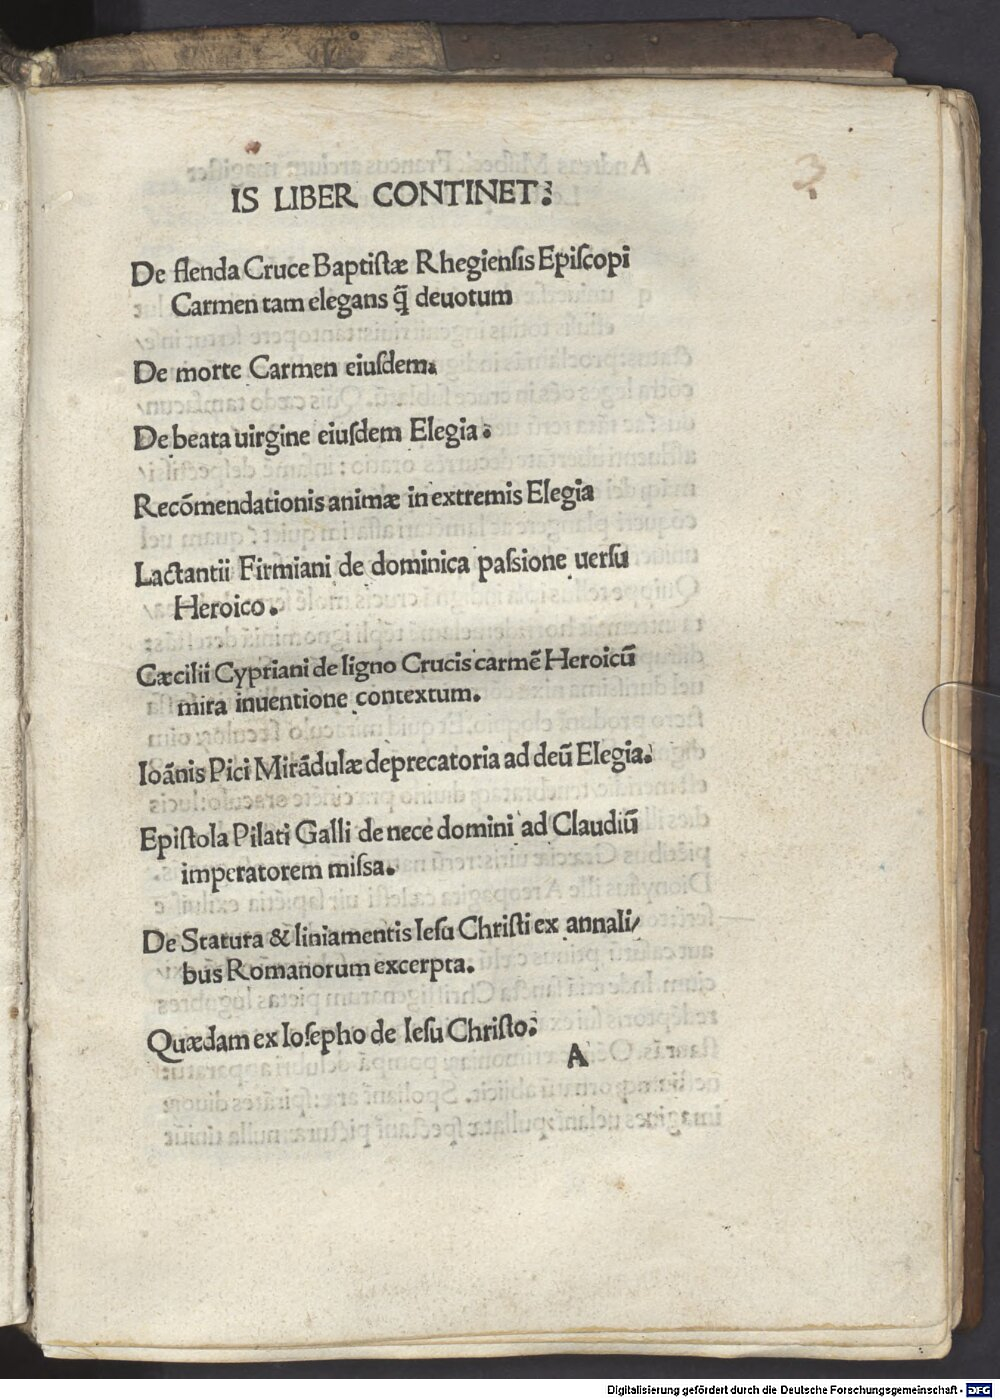 3
IS LIBER CONTINET:
De flenda Cruce Baptistæ Rhegiensis Episcopi
Carmen tam elegans q̃ deuotum
De morte Carmen eiusdem.
De beata uirgine eiusdem Elegia.
Recõmendationis animæ in extremis Elegia
Lactantii Firmiani de dominica passione uersu
Heroico.
Cæcilii Cypriani de ligno Crucis carmẽ Heroicũ
mira inuentione contextum.
Ioãnis Pici Mirãdulæ deprecatoria ad deũ Elegia.
Epistola Pilati Galli de nece domini ad Claudiũ
imperatorem missa.
De Statura & liniamentis Iesu Christi ex annali/
bus Romanorum excerpta.
Quædam ex Iosepho de Iesu Christo:
A
Digitalisierung gefördert durch die Deutsche Forschungsgemeinschaft - DFG